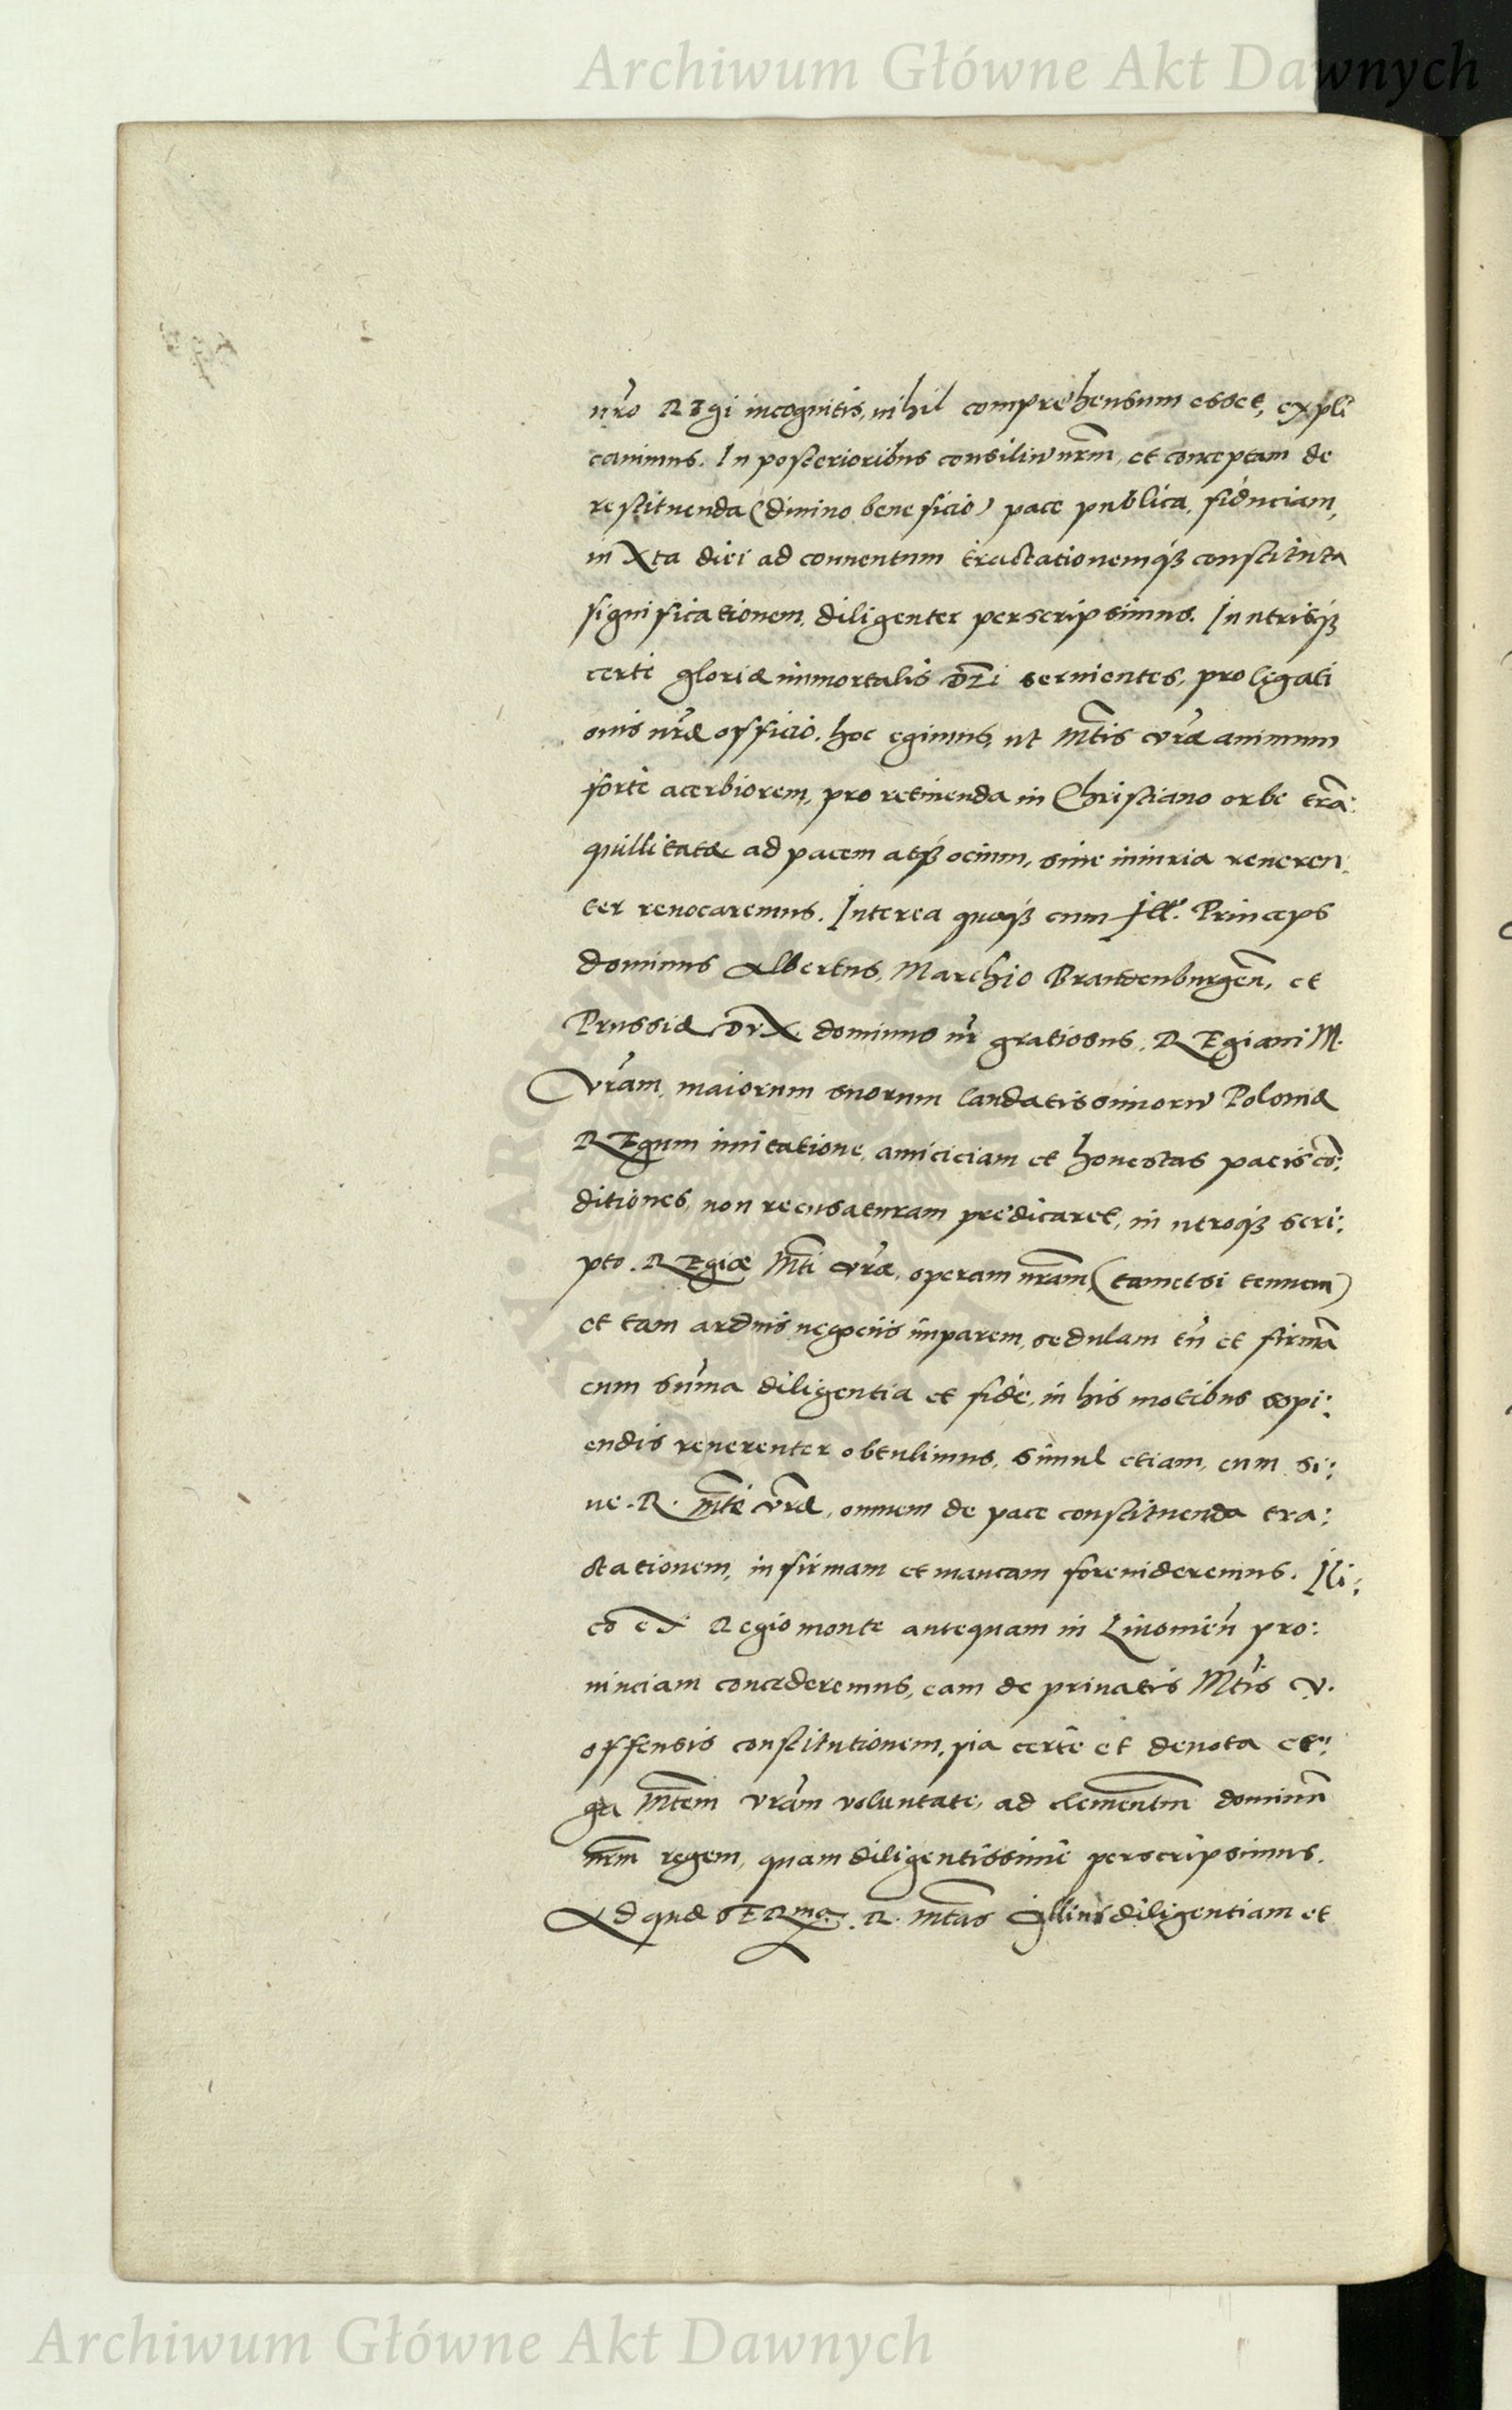 Archiwum Główne Akt Dawnych
nr̃o REgi incognitis, nihil comprehensum esset, expli
cauimus. In posterioribus consiliũ nrm̃, et conceptam de
restituenda (diuino beneficio) pace publica, fiduciam,
iuxta diei ad conuentum tractationemqꝫ constituta
significationem, diligenter perscripsimus. In utrisqꝫ
certè gloriæ immortalis DEi seruientes, pro legati
onis nr̃æ officio, hoc egimus, ut Mt̃is vr̃æ animum
fortè acerbiorem, pro retinenda in Christiano orbe trã:
quillitate ad pacem atqꝫ ocium, sine iniuria reueren:
ter reuocaremus. Interea quoqꝫ cum Ill. Princeps
dominus Albertus, Marchio Brandenburgeñ, et
Prussiæ DVX, dominus nr̃ gratiosus, REgiam M.
Vr̃am, maiorum suorum laudatissimorũ Poloniæ
REgum imitatione, amiciciam et honestas pacis cõ:
ditiones, non recusaturam prędicaret, in utroqꝫ scri:
pto. REgiæ Mt̃i vr̃æ, operam nr̃am (tametsi tenuem)
et tam arduis negociis imparem, sedulam tñ et firmã
cum sum̃a diligentia et fide, in his motibus sopi:
endis reuerenter obtulimus, simul etiam, cum si:
ne R. Mt̃e vr̃æ, omnem de pace constituenda tra:
ctationem, infirmam et mancam fore uideremus. Ili:
cò eX Regiomonte antequam in Liuonieñ pro:
uinciam concederemus, eam de priuatis Mt̃is V.
offensis constitutionem, pia certè et deuota er:
ga Mt̃em vr̃am voluntate, ad clementm̃ dominũ
nrm̃ regem, quam diligentissimè perscripsimus.
Ad quæ SERma. R. Mt̃as illius diligentiam et
Archiwum Główne Akt Dawnych